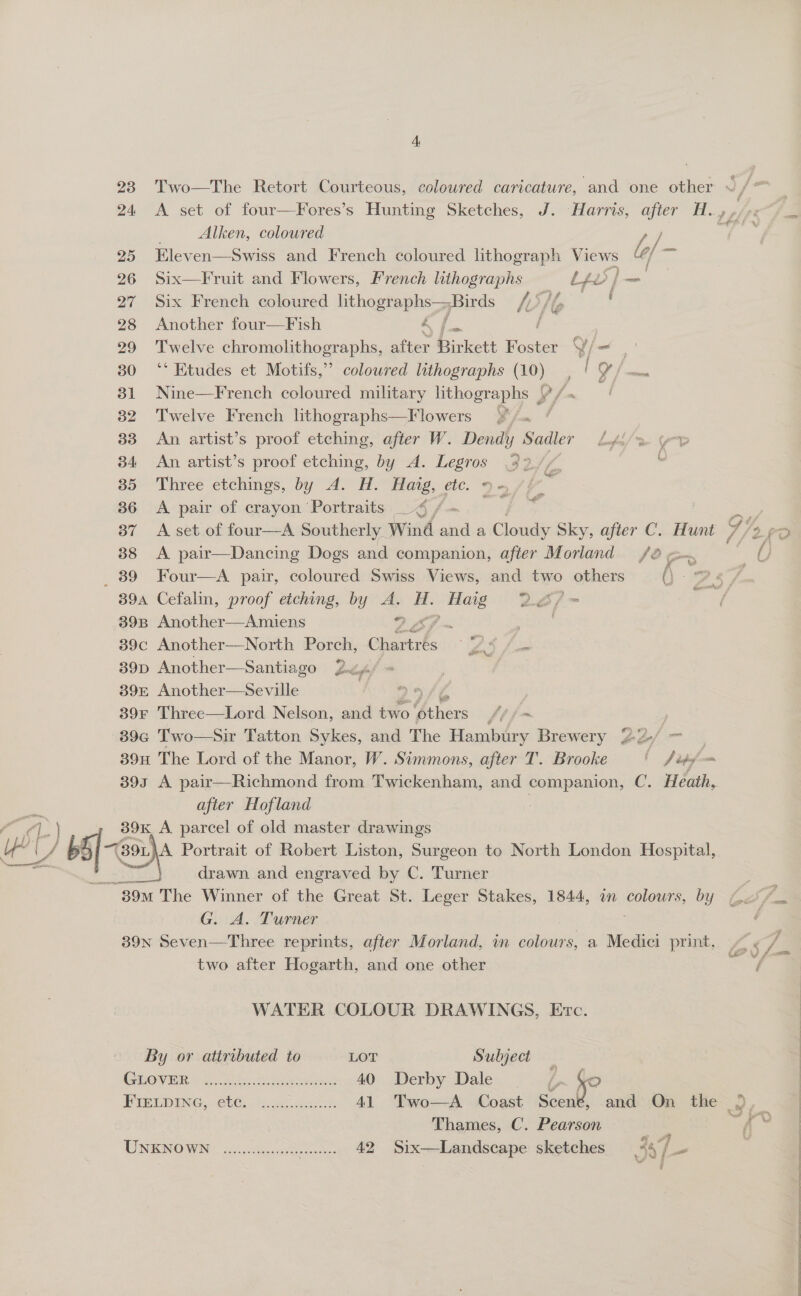 4
23 Two—The Retort Courteous, coloured caricature, and one other
24 A set of four—Fores's Hunting Sketches, J. Harris, after H.
Alken, coloured
25 Eleven—Swiss and French coloured lithograph Views
26 Six—Fruit and Flowers, French lithographs
27 Six French coloured lithographs—Birds
28 Another four—Fish
29 Twelve chromolithographs, after Birkett Foster
30 “Etudes et Motifs,” coloured lithographs (10)
31 Nine—French coloured military lithographs
32 Twelve French lithographs—Flowers
33 An artist's proof etching, after W. Dendy Sadler
34 An artist's proof etching, by A. Legros
35 Three etchings, by A. H. Haig, etc.
36 A pair of crayon Portraits
37 A set of four—A Southerly Wind and a Cloudy Sky, after C. Hunt
38 A pair—Dancing Dogs and companion, after Morland
39 Four—A pair, coloured Swiss Views, and two others
39A Cefalin, proof etching, by A. H. Haig
39B Another—Amiens
39C Another—North Porch, Chartres
39D Another—Santiago
39E Another—Seville
39F Three—Lord Nelson, and two others
39G Two—Sir Tatton Sykes, and The Hambury Brewery 22/-
39H The Lord of the Manor, W. Simmons, after T. Brooke
39J A pair—Richmond from Twickenham, and companion, C. Heath,
after Hofland
39K A parcel of old master drawings
39L A Portrait of Robert Liston, Surgeon to North London Hospital,
drawn and engraved by C. Turner
39M The Winner of the Great St. Leger Stakes, 1844, in colours, by
G. A. Turner
39N Seven—Three reprints, after Morland, in colours, a Medici print,
two after Hogarth, and one other
WATER COLOUR DRAWINGS, Etc.
By or attributed to LOT Subject
GLOVER ........................ 40 Derby Dale
FIELDING, etc. ............... 41 Two—A Coast Scene, and On the
Thames, C. Pearson
UNKNOWN ........................ 42 Six—Landscape sketches